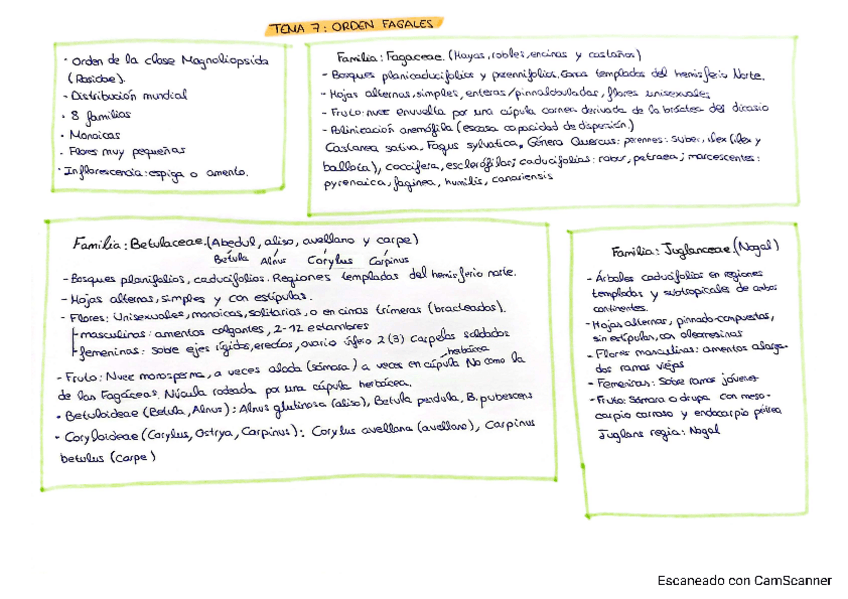 TEMA 7: ORDEN FAGALES
· Orden de la clase Magnoliopsida
(Rosidae).
- Distribución mundial
· 8 familias
· Monoicas
- Flores muy pequeñas
· Inflorescencia: espiga o amento.
Familia: Fagaceae. (Hayas, robles, encinas y castaños)
- Bosques planicaducifolios y perennifolios. Zonas templadas del hemisferio Norte.
- Hojas alternas, simples, enteras/pinnadolobuladas, flores unisexuales
- Fruto: nuez envuelta por una cúpula cornea derivada de la bráctea del dicasio
- Polinización anemófila (escasa capacidad de dispersión.)
Castanea sativa, Fagus sylvatica, Género Quercus: perennes: suber, ilex (ilex y
ballota), coccifera, esclerófilas; caducifolias: robur, petraea; marcescentes:
pyrenaica, faginea, humilis, canariensis
Familia: Betulaceae. (Abedul, aliso, avellano y carpe)
Betula Alnus Corylus Carpinus
- Bosques planifolios, caducifolios. Regiones templadas del hemisferio norte.
- Hojas alternas, simples y con estípulas.
- Flores: Unisexuales, monoicas, solitarias, o en cimas trímeras (bracteados).
masculinas: amentos colgantes, 2-12 estambres
femeninas: sobre ejes rígidos, erectos, ovario ínfero 2(3) carpelos soldados
- Fruto: Nuez monosperma, a veces alada (sámara) a veces en cúpula herbácea No como la
de las Fagáceas. Núcula rodeada por una cúpula herbácea.
· Betuloideae (Betula, Alnus): Alnus glutinosa (aliso), Betula pendula, B. pubescens
· Coryloideae (Corylus, Ostrya, Carpinus): Corylus avellana (avellano), Carpinus
betulus (carpe)
Familia: Juglanceae. (Nogal)
- Árboles caducifolios en regiones
templadas y subtropicales de ambos
continentes.
- Hojas alternas, pinnado-compuestas,
sin estípulas, con oleorresinas
- Flores masculinas: amentos alarga-
dos ramas viejas
- Femeninas: Sobre ramas jóvenes
- Fruto: Sámara o drupa con meso-
carpio carnoso y endocarpio pétreo
Juglans regia: Nogal
Escaneado con CamScanner